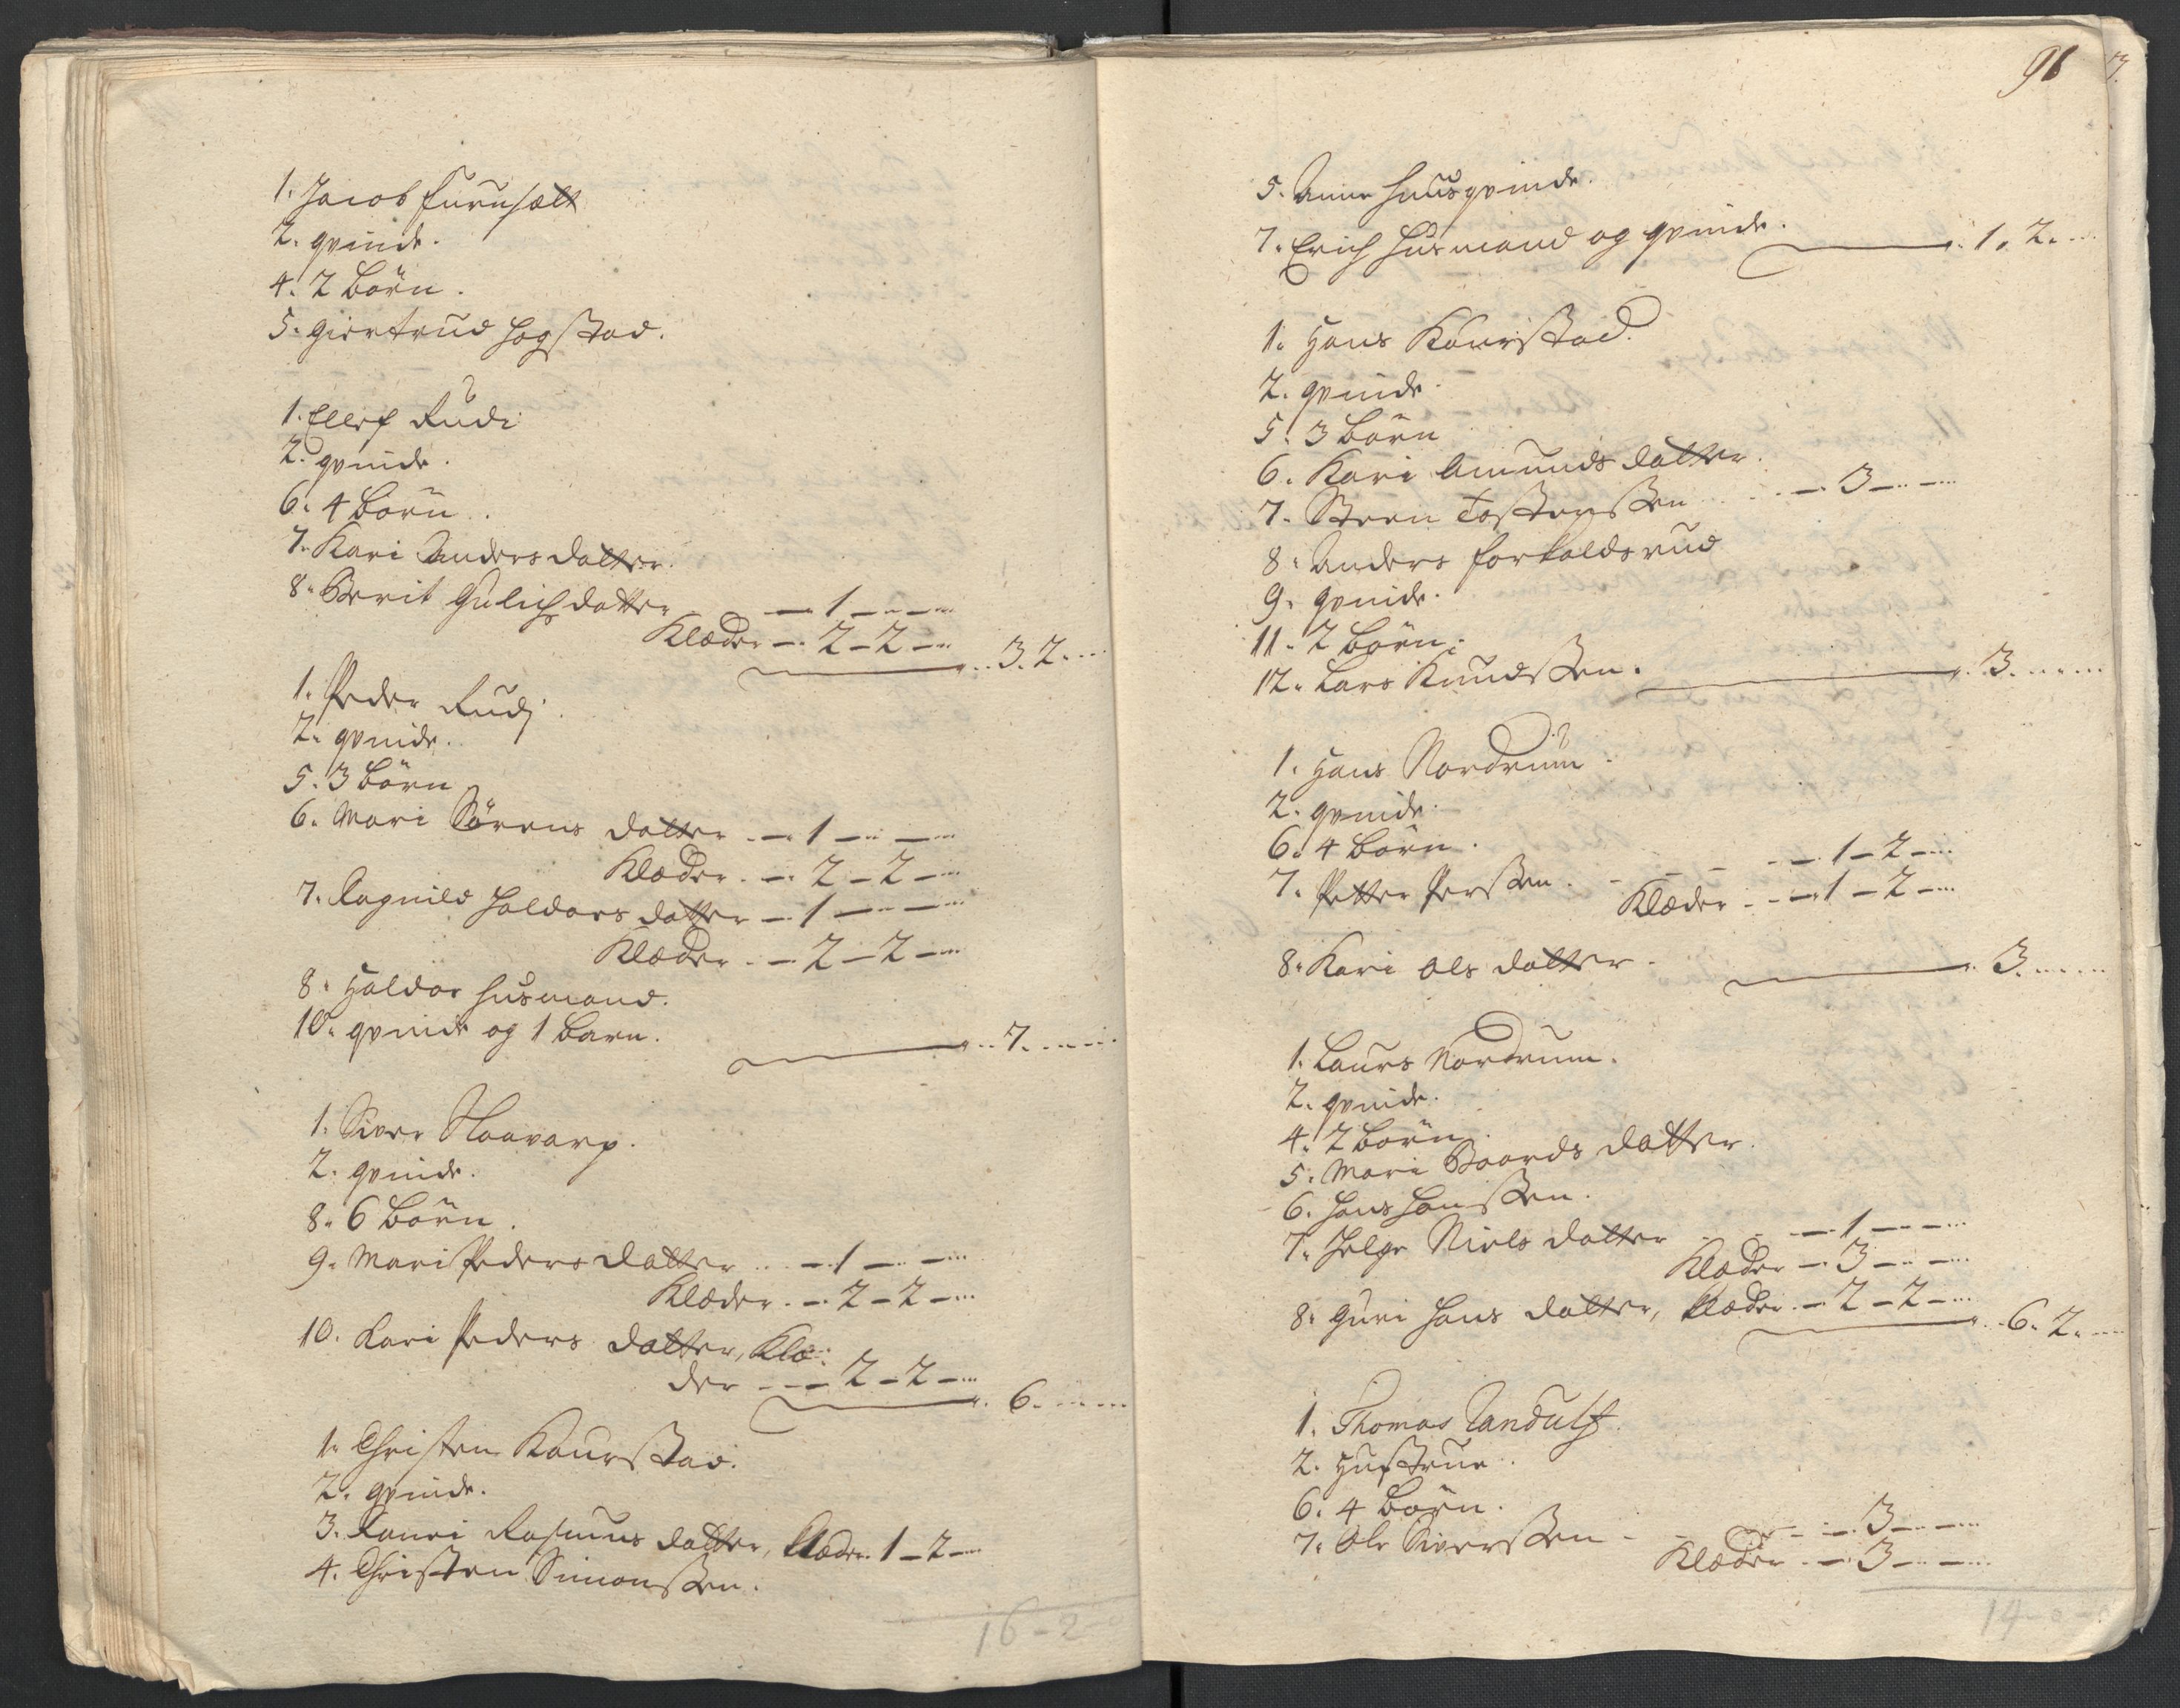 1. Jacob Furuset
2. qvinde.
4. 2 Börn.
5. Giertrud Hogstad.
1. Ellef Rudi
2. qvinde.
6. 4 Börn.
7. Kari Anders datter.
8. Berit Gulichs datter – 1 –
Klæder – 2 – 2 –
3. 2.
1. Peder Rudj.
2. qvinde.
5. 3 Börn
6. Mari Sörens datter – 1 –
Klæder – 2 – 2 –
7. Ragnild Haldors datter – 1 –
Klæder – 2 – 2 –
8. Haldor Husmand.
10. qvinde og 1 Barn.
7.
1. Siver
2. qvinde.
8. 6 Börn.
9. Mari Peders datter – 1 –
Klæder – 2 – 2 –
10. Kari Peders datter, Klæ
der – 2 – 2 –
6.
1. Christen Kaurstad.
2. qvinde.
3. Ranei Rasmus datter, klæder 1 – 2 –
4. Christen Simonssen.
16 – 2 – 0
98
5. Anne Huusqvinde.
7. Erich Husmand og qvinde.
1. 2.
1. Hans Kaurstad.
2. qvinde.
5. 3 Börn
6. Kari Amunds datter.
7. Steen Tostenssen – 3 –
8. Anders
9. qvinde.
11. 2 Börn.
12. Lars Knudssen.
3.
1. Hans Nordrum.
2. qvinde.
6. 4 Börn.
7. Petter Perssen. – 1 – 2 –
Klæder – 1 – 2 –
8. Kari Ols datter.
3.
1. Laurs Nordrum.
2. qvinde.
4. 2 Börn.
5. Mari Baards datter.
6. Hans Hanssen.
7. Helge Niels datter – 1 –
Klæder – 3 –
8. Guri Hans datter, klæder – 2 – 2 –
6. 2.
1. Thomas Randulf.
2. Hustrue.
6. 4 Börn.
7. Ole Siverssen – 3 –
Klæder – 3 –
14 – 0 – 0